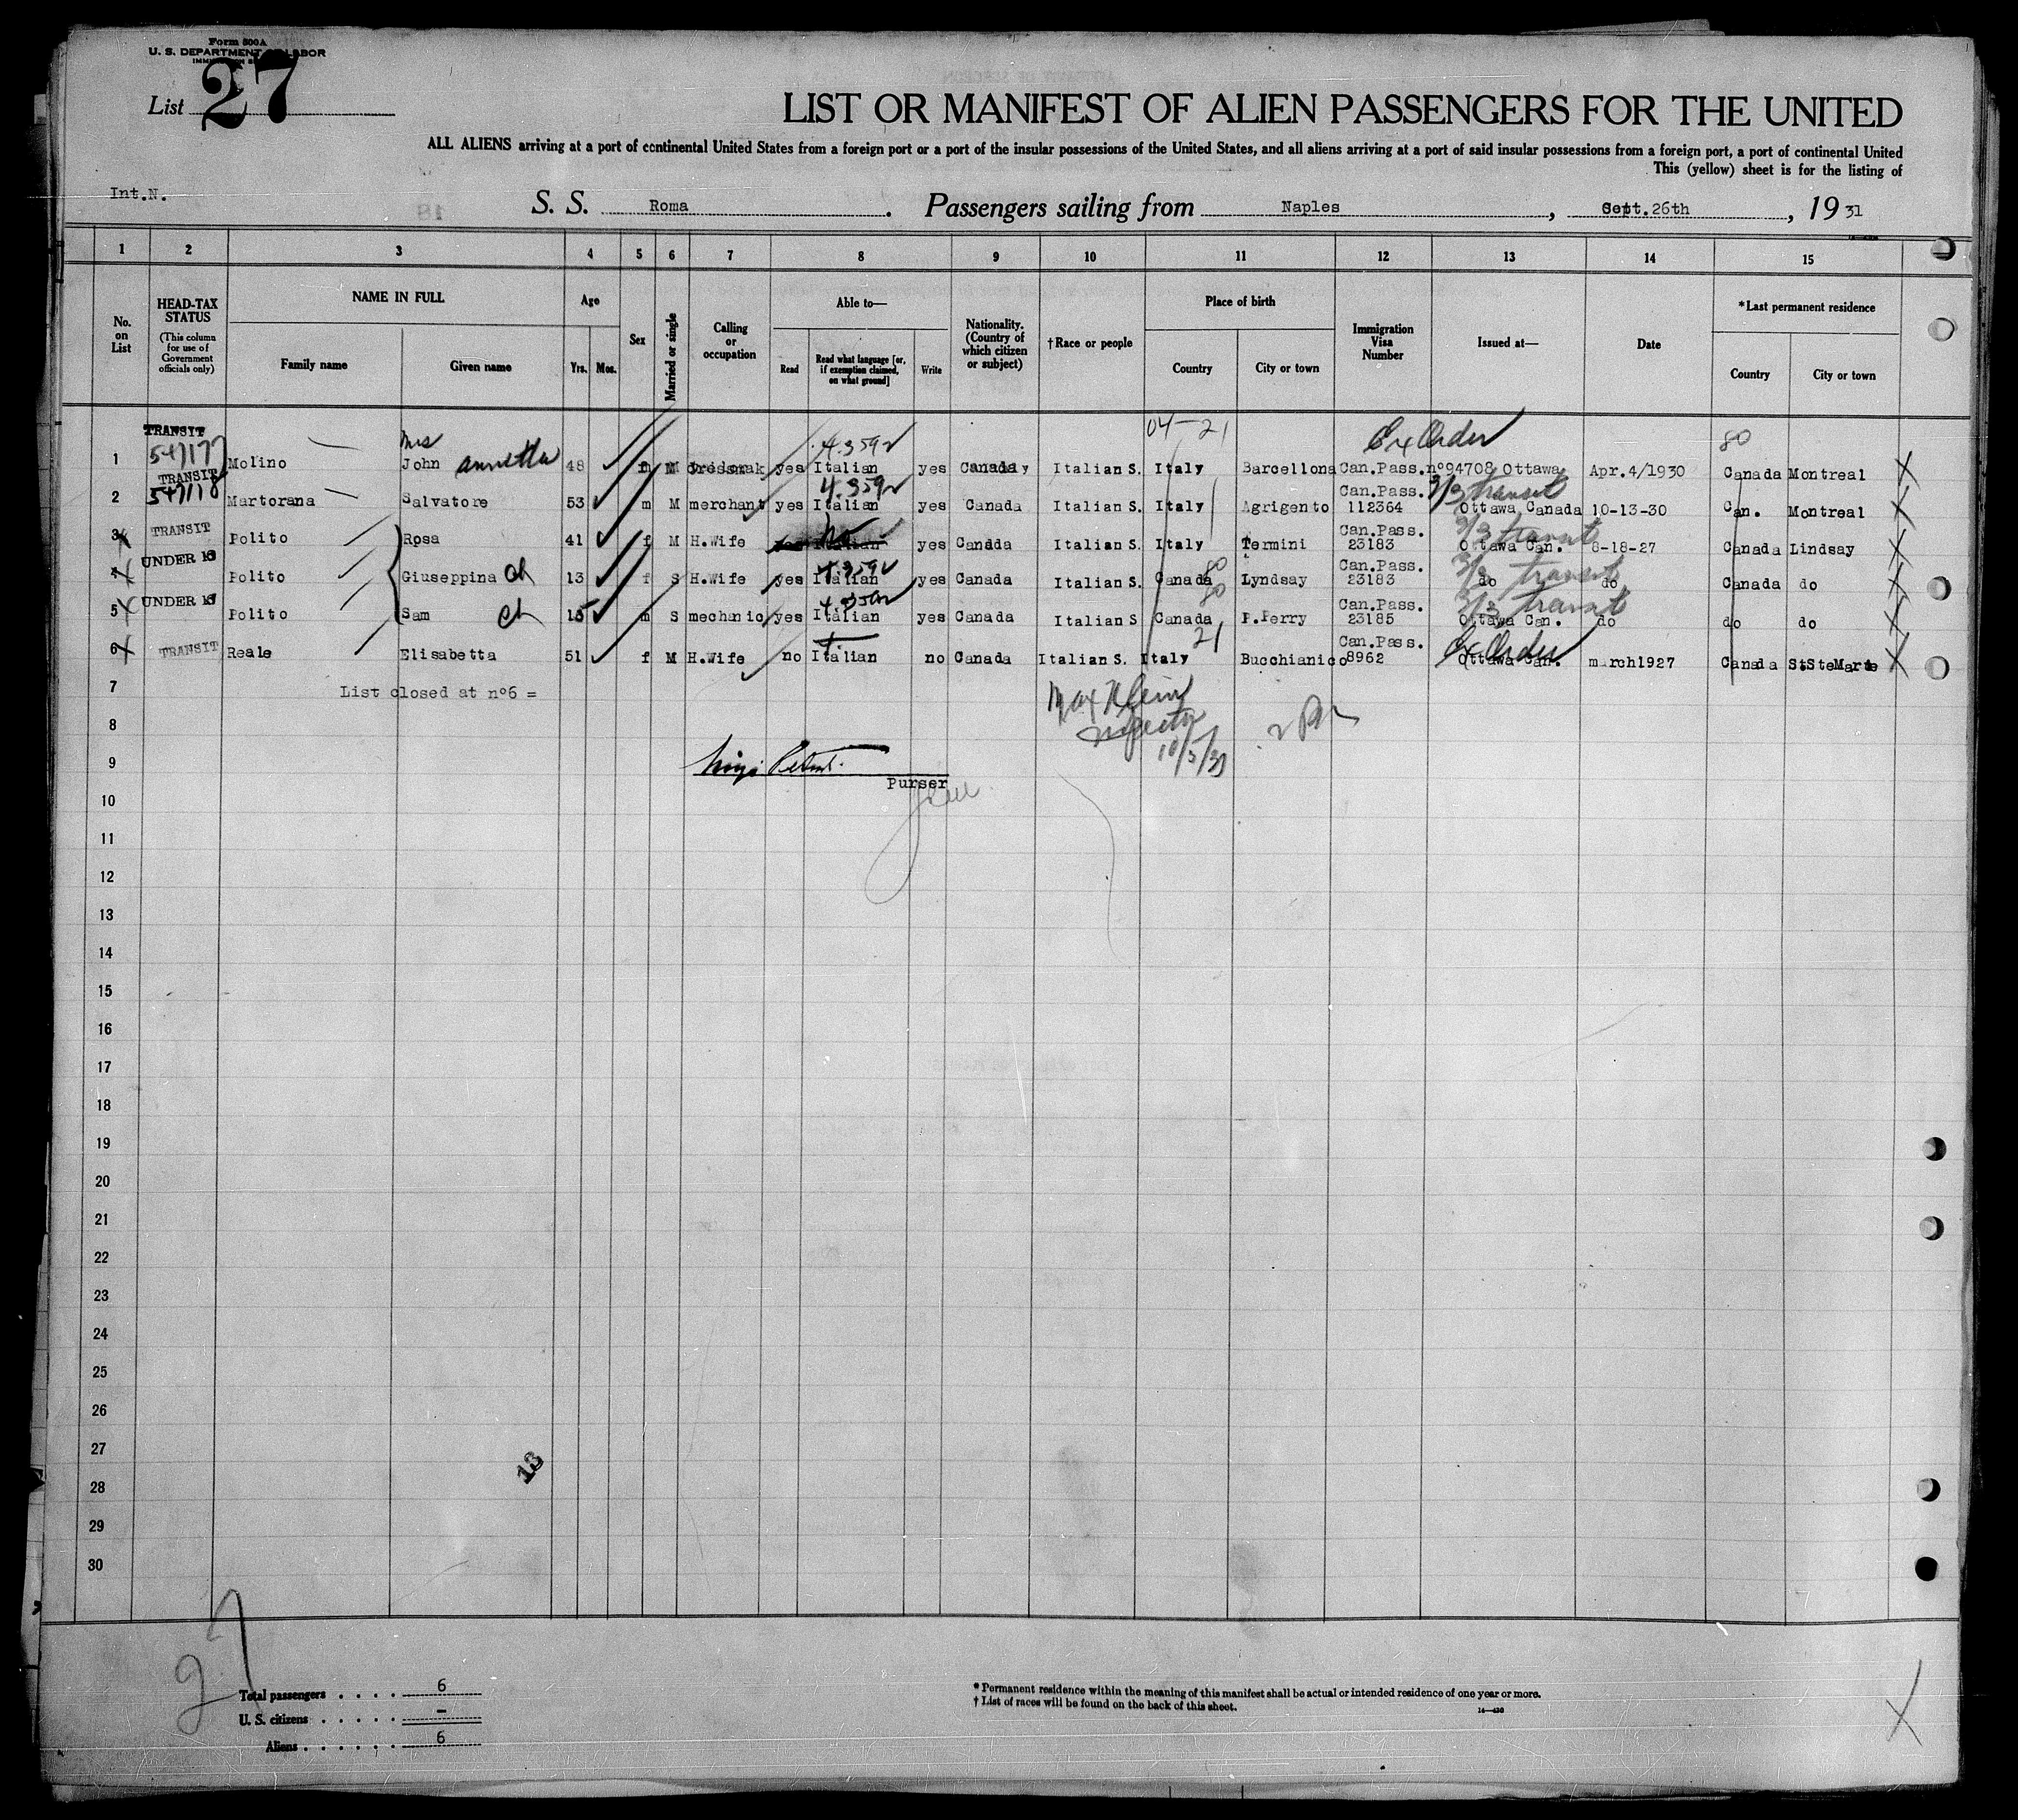 Form 500A
U. S. DEPARTMENT OF LABOR
List 27
LIST OR MANIFEST OF ALIEN PASSENGERS FOR THE UNITED
ALL ALIENS arriving at a port of continental United States from a foreign port or a port of the insular possessions of the United States, and all aliens arriving at a port of said insular possessions from a foreign port, a port of continental United
This (yellow) sheet is for the listing of
Int.N.
S. S. Roma. Passengers sailing from Naples, Sept.26th, 19 31
1 2 3 4 5 6 7 8 9 10 11 12 13 14 15
No. on List
HEAD-TAX STATUS
(This column for use of Government officials only)
NAME IN FULL
Family name
Given name
Age
Yrs.
Mos.
Sex
Married or single
Calling or occupation
Able to—
Read
Read what language [or, if exemption claimed, on what ground]
Write
Nationality. (Country of which citizen or subject)
†Race or people
Place of birth
Country
City or town
Immigration Visa Number
Issued at—
Date
*Last permanent residence
Country
City or town
TRANSIT Mrs 4.359 04-21 Ex Order 80
1 547177 Molino John Annetta 48 M yes Italian yes Canada Italian S. Italy Barcellona Can.Pass.nº94708 Ottawa Apr.4/1930 Canada Montreal X
TRANSIT 4.359 Can.Pass. 3/3 transit
2 547178 Martorana Salvatore 53 m M merchant yes Italian yes Canada Italian S. Italy Agrigento 112364 Ottawa Canada 10-13-30 Can. Montreal X
No Can.Pass. 3/3 transit
3 TRANSIT Polito Rosa 41 f M H.Wife Italian yes Canada Italian S. Italy Termini 23183 Ottawa Can. 8-18-27 Canada Lindsay X
UNDER 16 4.359 80 Can.Pass. 3/3 transit
4 Polito Giuseppina Ch 13 f S H.Wife yes Italian yes Canada Italian S. Canada Lyndsay 23183 do do Canada do X
UNDER 16 4.359 80 Can.Pass. 3/3 transit
5 Polito Sam Ch 15 m S mechanic yes Italian yes Canada Italian S Canada P.Perry 23185 Ottawa Can. do do do X
21 Can.Pass. Ex Order
6 TRANSIT Reale Elisabetta 51 f M H.Wife no Italian no Canada Italian S. Italy Bucchianico 8962 Ottawa Can. march1927 Canada StSteMarie X
7 List closed at nº6 =
Max Klein
Inspector
8
10/5/31
9
Purser
10
11
12
13
14
15
16
17
18
19
20
21
22
23
24
25
26
27
13
28
29
30
27
Total passengers . . . . 6
U. S. citizens . . . . . –
Aliens . . . . . . 6
* Permanent residence within the meaning of this manifest shall be actual or intended residence of one year or more.
† List of races will be found on the back of this sheet.
14—430
X